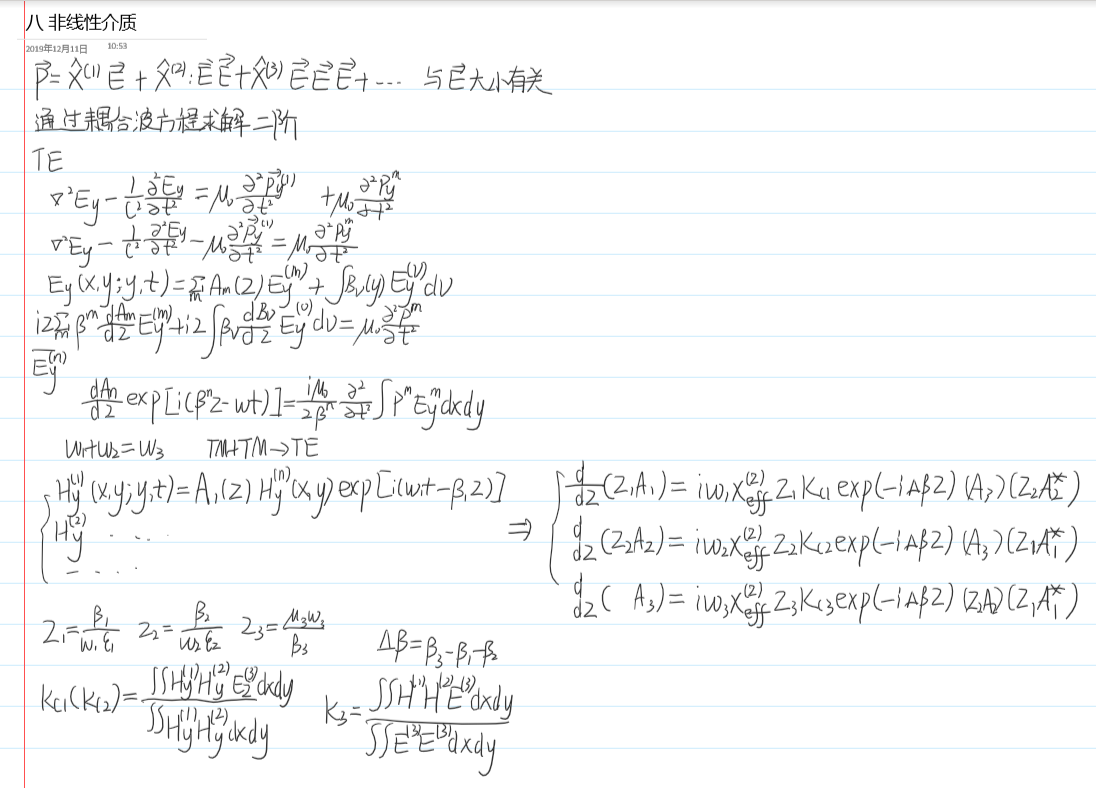 八 非线性介质
2019年12月11日 10:53
P⃗ = X̂⁽¹⁾ E⃗ + X̂⁽²⁾: E⃗ E⃗ + X̂⁽³⁾ E⃗ E⃗ E⃗ + ··· 与 E⃗ 大小有关
通过耦合波方程求解二阶
TE
▽²Ey - 1/C² ∂²Ey/∂t² = μ₀ ∂²P⃗y⁽¹⁾/∂t² + μ₀ ∂²Py^m/∂t²
▽²Ey - 1/C² ∂²Ey/∂t² - μ₀ ∂²P⃗y⁽¹⁾/∂t² = μ₀ ∂²Py^m/∂t²
Ey(x,y;y,t) = Σm Am(z) Ey^(m) + ∫Bν(y) Ey^(ν) dν
i2 Σm β^m dAm/dz Ey^(m) + i2 ∫ βν dBν/dz Ey^(υ) dυ = μ₀ ∂²P^m/∂t²
Ey^(n)
dAn/dz exp[i(β^n z - wt)] = iμ₀/2β^n ∂²/∂t² ∫ P^m Ey^m dxdy
w₁+w₂=w₃ TM+TM→TE
Hy⁽¹⁾(x,y;y,t) = A₁(z) Hy^(n)(x,y) exp[i(w₁t-β₁z)]
Hy⁽²⁾ ····
- ···
⇒ d/dz (Z₁A₁) = iw₁X⁽²⁾eff Z₁ Kc1 exp(-iΔβz) (A₃)(Z₂A₂*)
d/dz (Z₂A₂) = iw₂X⁽²⁾eff Z₂ Kc2 exp(-iΔβz) (A₃)(Z₁A₁*)
d/dz ( A₃) = iw₃X⁽²⁾eff Z₃ Kc3 exp(-iΔβz) (Z₂A₂)(Z₁A₁*)
Z₁ = β₁/w₁ε₁ Z₂ = β₂/w₂ε₂ Z₃ = μ₃w₃/β₃ Δβ = β₃-β₁-β₂
Kc1(Kc2) = ∫∫Hy⁽¹⁾Hy⁽²⁾E₂⁽³⁾dxdy / ∫∫Hy⁽¹⁾Hy⁽²⁾dxdy K₃ = ∫∫H⁽¹⁾H⁽²⁾E⁽³⁾dxdy / ∫∫E⁽³⁾E⁽³⁾dxdy